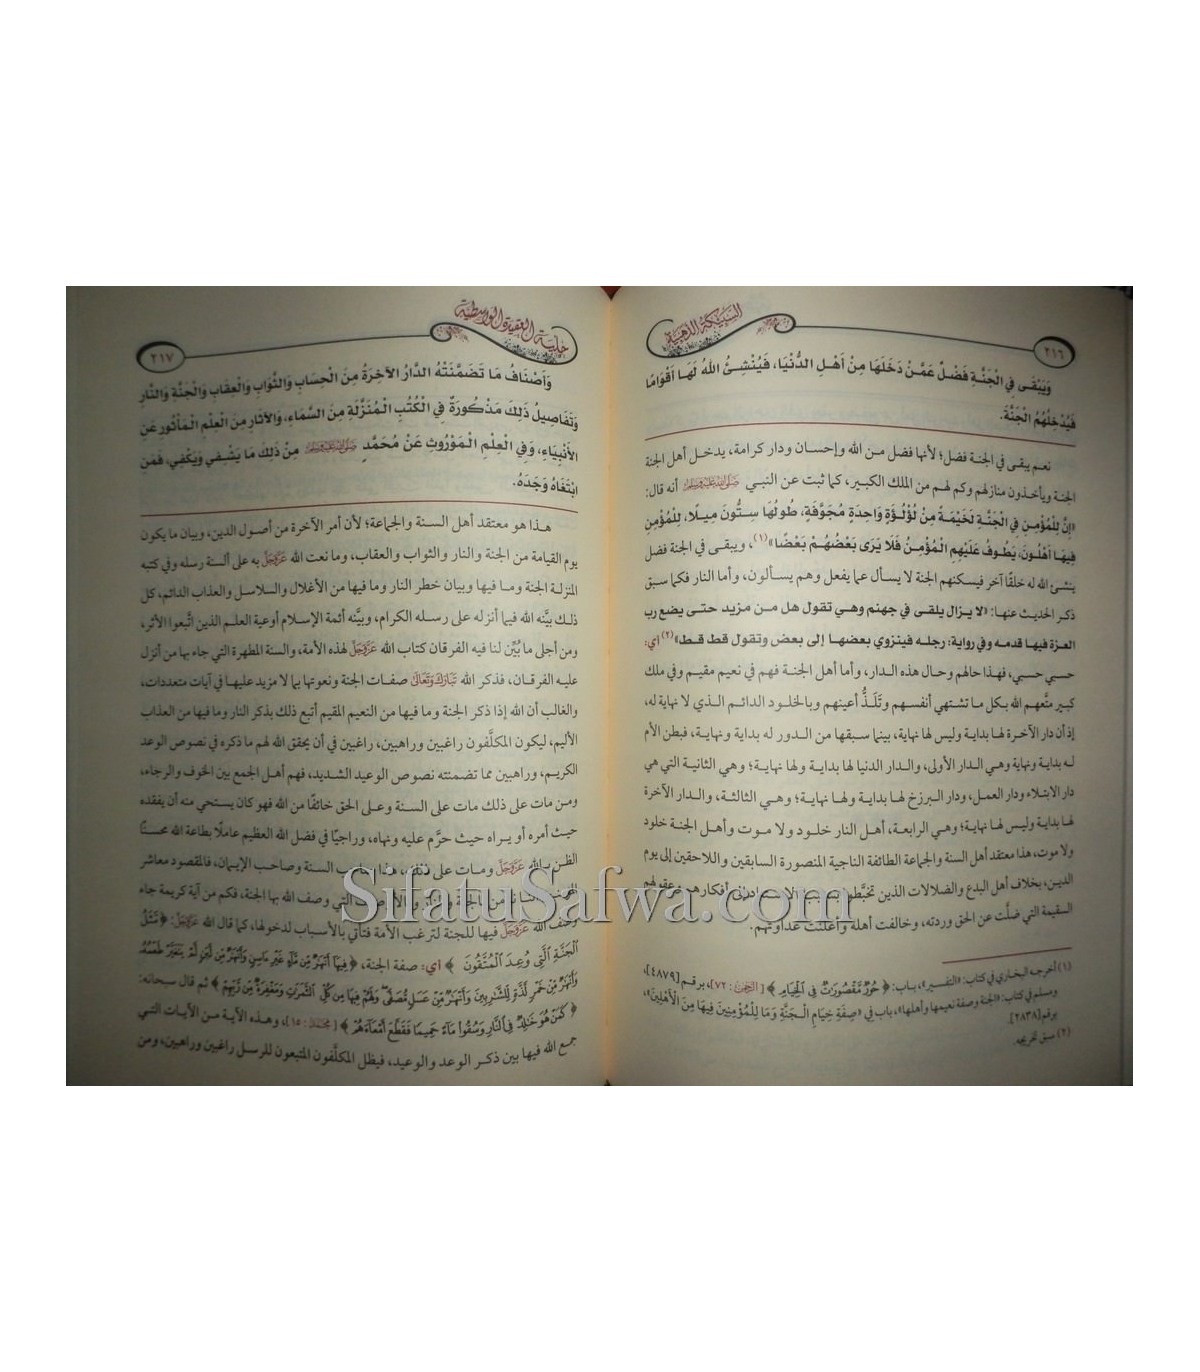 ٢١٦
السبيكة الذهبية
وَيَبْقَى فِي الْجَنَّةِ فَضْلٌ عَمَّنْ دَخَلَهَا مِنْ أَهْلِ الدُّنْيَا، فَيُنْشِئُ اللهُ لَهَا أَقْوَامًا
فَيُدْخِلُهُمُ الْجَنَّةَ.
نعم يبقى في الجنة فضل؛ لأنها فضل من الله وإحسان ودار كرامة، يدخل أهل الجنة
الجنة ويأخذون منازلهم وكم لهم من الملك الكبير، كما ثبت عن النبي ﷺ أنه قال:
«إِنَّ لِلْمُؤْمِنِ فِي الْجَنَّةِ لَخَيْمَةً مِنْ لُؤْلُؤَةٍ وَاحِدَةٍ مُجَوَّفَةٍ، طُولُهَا سِتُّونَ مِيلًا، لِلْمُؤْمِنِ
فِيهَا أَهْلُونَ، يَطُوفُ عَلَيْهِمِ الْمُؤْمِنُ فَلَا يَرَى بَعْضُهُمْ بَعْضًا»(١)، ويبقى في الجنة فضل
ينشئ الله له خلقًا آخر فيسكنهم الجنة لا يسأل عما يفعل وهم يسألون، وأما النار فكما سبق
ذكر الحديث عنها: «لا يزال يلقى في جهنم وهي تقول هل من مزيد حتى يضع رب
العزة فيها قدمه وفي رواية: رجله فينزوي بعضها إلى بعض وتقول قط قط»(٢) أي:
حسبي حسبي، فهذا حالهم وحال هذه الدار، وأما أهل الجنة فهم في نعيم مقيم وفي ملك
كبير متَّعهم الله بكل ما تشتهي أنفسهم وتَلَذُّ أعينهم وبالخلود الدائم الذي لا نهاية له،
إذ أن دار الآخرة لها بداية وليس لها نهاية، بينما سبقها من الدور له بداية ونهاية، فبطن الأم
له بداية ونهاية وهي الدار الأولى، والدار الدنيا لها بداية ولها نهاية؛ وهي الثانية التي هي
دار الابتلاء ودار العمل، ودار البرزخ لها بداية ولها نهاية؛ وهي الثالثة، والدار الآخرة
لها بداية وليس لها نهاية؛ وهي الرابعة، أهل النار خلود ولا موت وأهل الجنة خلود
ولا موت، هذا معتقد أهل السنة والجماعة الطائفة الناجية المنصورة السابقين واللاحقين إلى يوم
الدين، بخلاف أهل البدع والضلالات الذين تخبَّطوا في أفكارهم وعقولهم
السقيمة التي ضلَّت عن الحق وردته، وخالفت أهله وأعلنت عداوتهم.
(١) أخرجه البخاري في كتاب: «التفسير»، باب: ﴿حُورٌ مَّقْصُورَاتٌ فِي الْخِيَامِ﴾ [الرحمن: ٧٢]، برقم [٤٨٧٩]،
ومسلم في كتاب: «الجنة وصفة نعيمها وأهلها»، باب في «صِفَةِ خِيَامِ الْجَنَّةِ وَمَا لِلْمُؤْمِنِينَ فِيهَا مِنَ الْأَهْلِينَ»،
برقم [٢٨٣٨].
(٢) سبق تخريجه.
حلية العقيدة الواسطية
٢١٧
وَأَصْنَافُ مَا تَضَمَّنَتْهُ الدَّارُ الآخِرَةُ مِنَ الْحِسَابِ وَالثَّوَابِ وَالْعِقَابِ وَالْجَنَّةِ وَالنَّارِ
وَتَفَاصِيلُ ذَلِكَ مَذْكُورَةٌ فِي الْكُتُبِ الْمُنَزَّلَةِ مِنَ السَّمَاءِ، وَالآثَارِ مِنَ الْعِلْمِ الْمَأْثُورِ عَنِ
الأَنْبِيَاءِ، وَفِي الْعِلْمِ الْمَوْرُوثِ عَنْ مُحَمَّدٍ ﷺ مِنْ ذَلِكَ مَا يَشْفِي وَيَكْفِي، فَمَنِ
ابْتَغَاهُ وَجَدَهُ.
هذا هو معتقد أهل السنة والجماعة؛ لأن أمر الآخرة من أصول الدين، وبيان ما يكون
يوم القيامة من الجنة والنار والثواب والعقاب، وما نعت الله عَزَّوَجَلَّ به على ألسنة رسله وفي كتبه
المنزلة الجنة وما فيها وبيان خطر النار وما فيها من الأغلال والسلاسل والعذاب الدائم، كل
ذلك بيَّنه الله فيما أنزله على رسله الكرام، وبيَّنه أئمة الإسلام أوعية العلم الذين اتَّبعوا الأثر،
ومن أجلى ما بُيِّن لنا فيه الفرقان كتاب الله عَزَّوَجَلَّ لهذه الأمة، والسنة المطهرة التي جاء بها من أنزل
عليه الفرقان، فذكر الله تَبَارَكَ وَتَعَالَى صفات الجنة ونعوتها بما لا مزيد عليها في آيات متعددات،
والغالب أن الله إذا ذكر الجنة وما فيها من النعيم المقيم أتبع ذلك بذكر النار وما فيها من العذاب
الأليم، ليكون المكلَّفون راغبين وراهبين، راغبين في أن يحقق الله لهم ما ذكره في نصوص الوعد
الكريم، وراهبين مما تضمنته نصوص الوعيد الشديد، فهم أهل الجمع بين الخوف والرجاء،
ومن مات على ذلك مات على السنة وعلى الحق خائفًا من الله فهو كان يستحي منه أن يفقده
حيث أمره أو يراه حيث حرَّم عليه ونهاه، وراجيًا في فضل الله العظيم عاملًا بطاعة الله محسنًا
الظن بالله عَزَّوَجَلَّ ومات على ذلك، هذا صاحب السنة وصاحب الإيمان، فالمقصود معاشر
التي وصف الله بها الجنة، فكم من آية كريمة جاء
وصف الله عَزَّوَجَلَّ فيها للجنة لترغب الأمة فتأتي بالأسباب لدخولها، كما قال الله عَزَّوَجَلَّ: ﴿مَثَلُ
الْجَنَّةِ الَّتِي وُعِدَ الْمُتَّقُونَ﴾ أي: صفة الجنة، ﴿فِيهَا أَنْهَارٌ مِّن مَّاءٍ غَيْرِ آسِنٍ وَأَنْهَارٌ مِّن لَّبَنٍ لَّمْ يَتَغَيَّرْ طَعْمُهُ
وَأَنْهَارٌ مِّنْ خَمْرٍ لَّذَّةٍ لِّلشَّارِبِينَ وَأَنْهَارٌ مِّنْ عَسَلٍ مُّصَفًّى وَلَهُمْ فِيهَا مِن كُلِّ الثَّمَرَاتِ وَمَغْفِرَةٌ مِّن رَّبِّهِمْ﴾ ثم قال سبحانه:
﴿كَمَنْ هُوَ خَالِدٌ فِي النَّارِ وَسُقُوا مَاءً حَمِيمًا فَقَطَّعَ أَمْعَاءَهُمْ﴾ [محمد: ١٥]، وهذه الآية من الآيات التي
جمع الله فيها بين ذكر الوعد والوعيد، فيظل المكلَّفون المتبعون للرسل راغبين وراهبين، ومن
SifatuSafwa.com